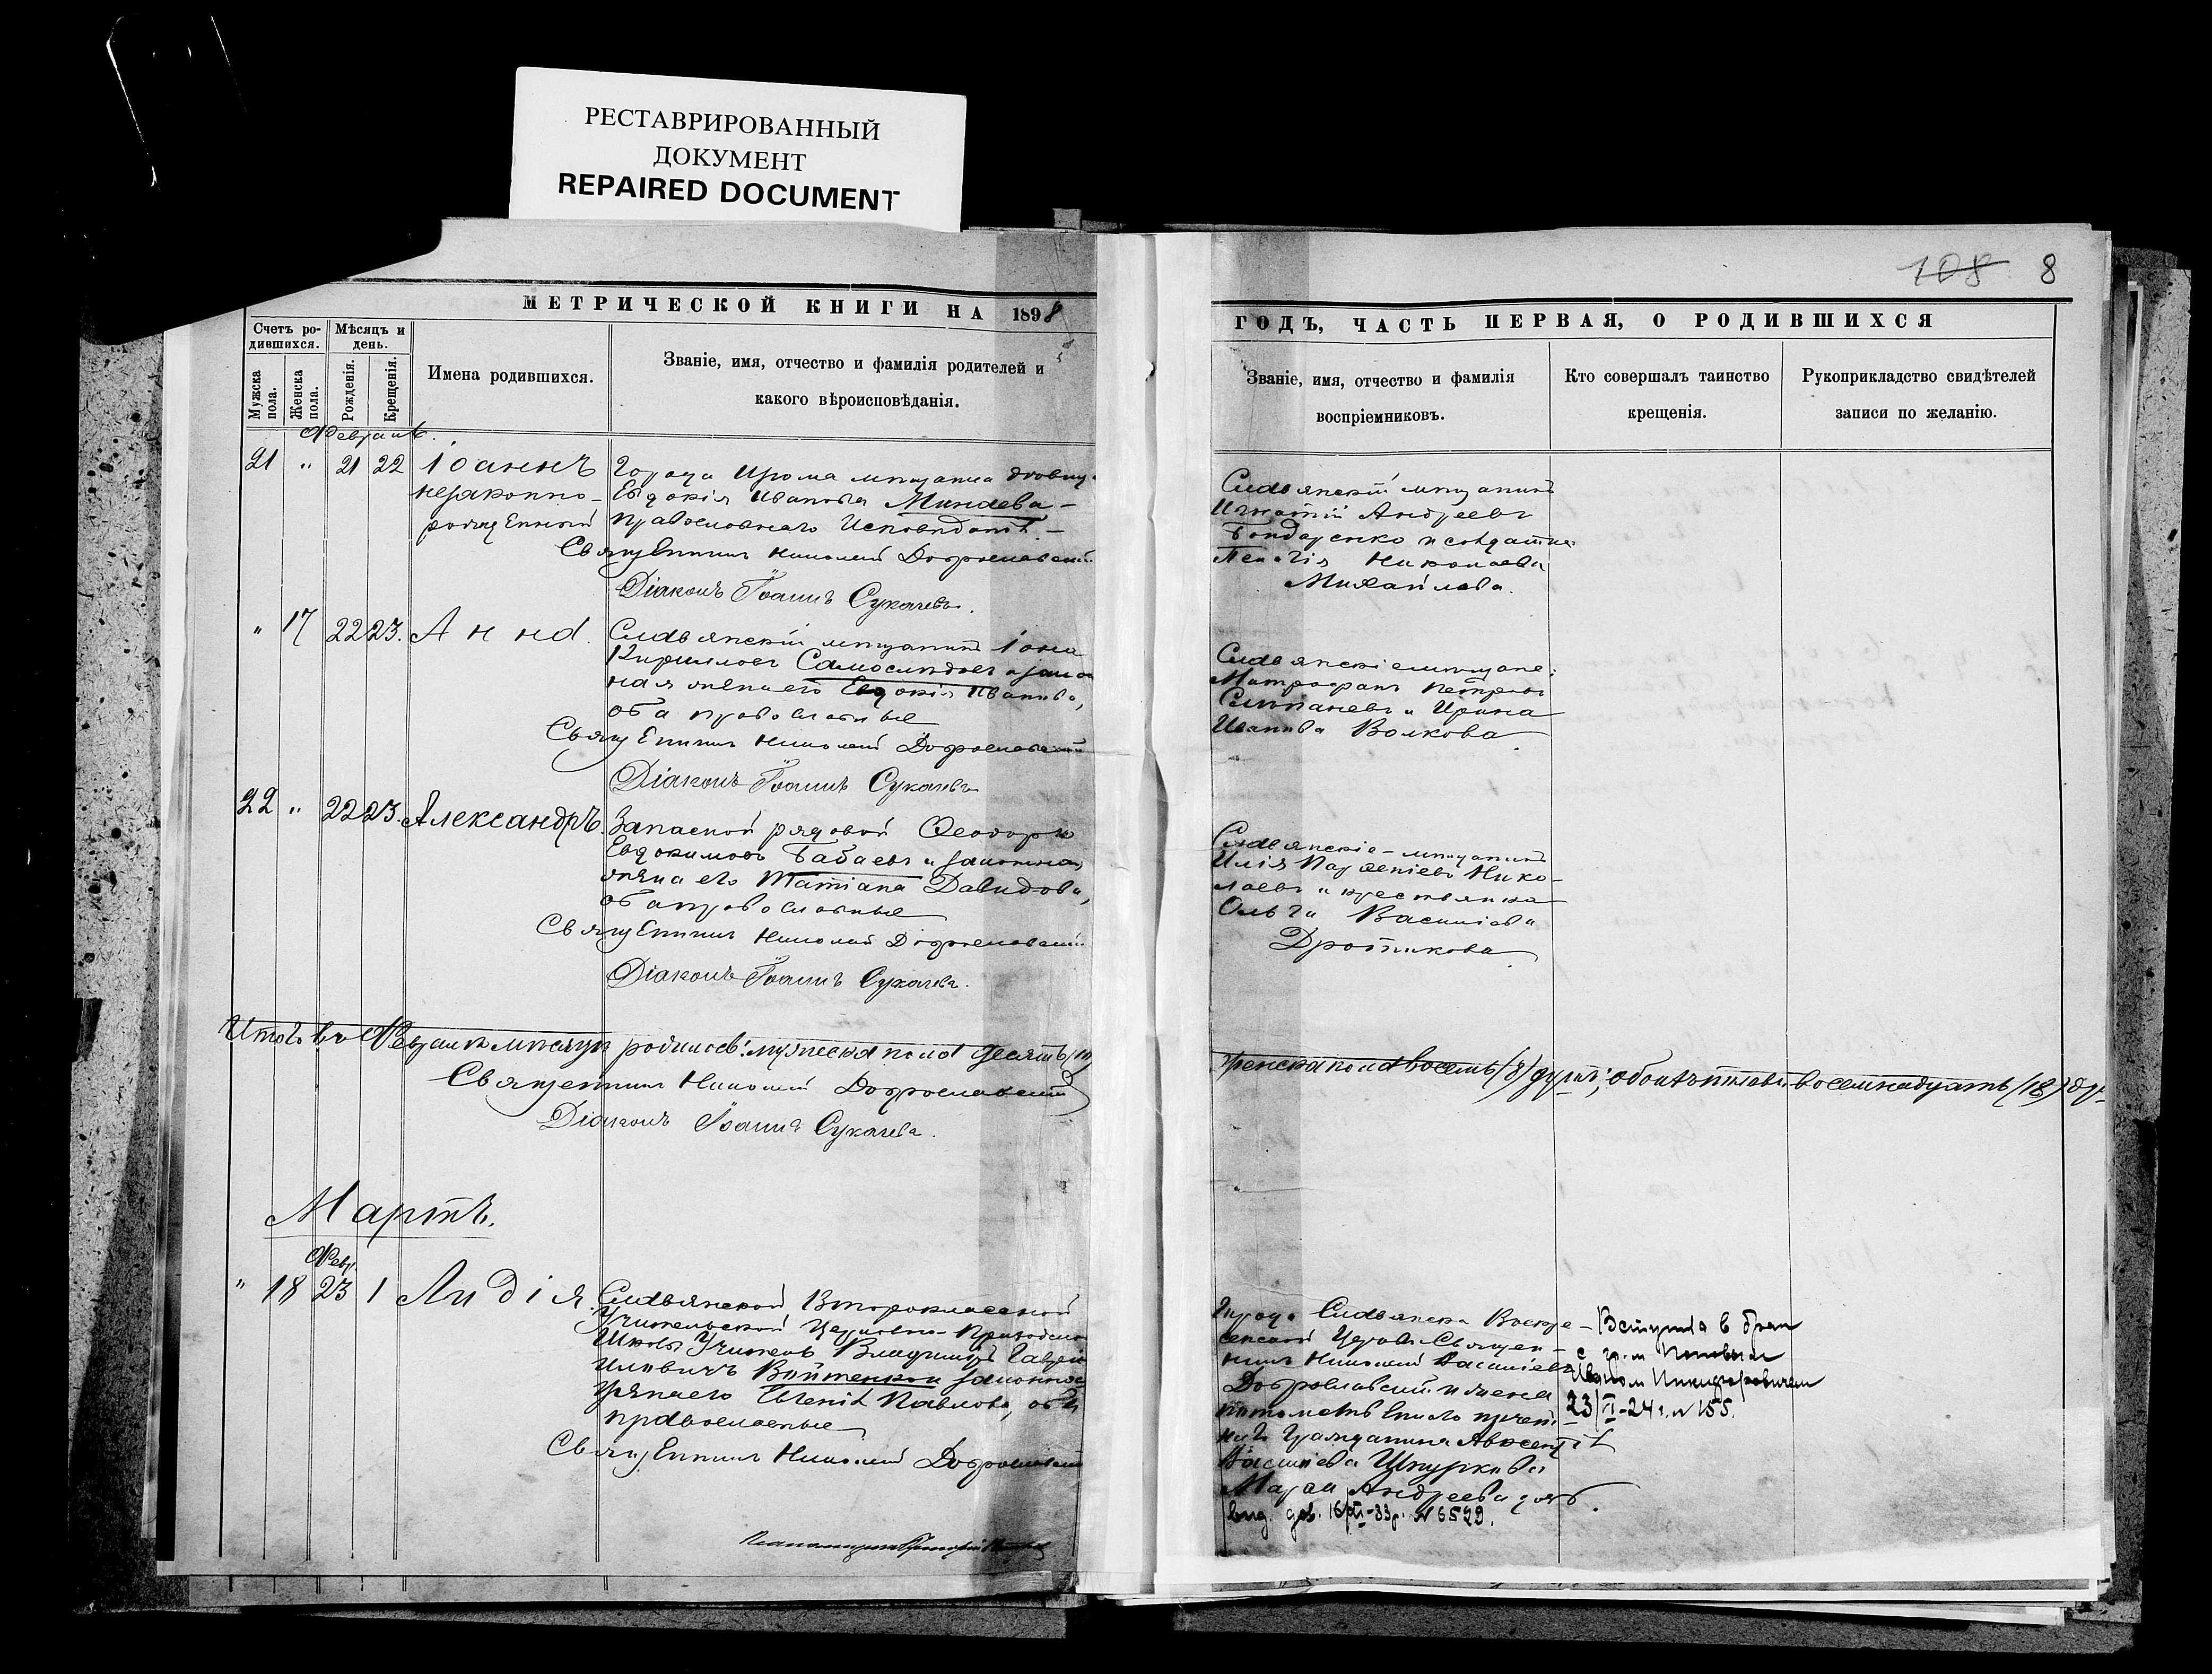 РЕСТАВРИРОВАННЫЙ
ДОКУМЕНТ
REPAIRED DOCUMENT
108 8
МЕТРИЧЕСКОЙ КНИГИ НА 1898
ГОДЪ, ЧАСТЬ ПЕРВАЯ, О РОДИВШИХСЯ
Счетъ ро-
дившихся.
Мѣсяцъ и
день.
Мужска
пола.
Женска
пола.
Рожденія.
Крещенія.
Имена родившихся.
Званіе, имя, отчество и фамилія родителей и
какого вѣроисповѣданія.
Званіе, имя, отчество и фамилія
воспріемниковъ.
Кто совершалъ таинство
крещенія.
Рукоприкладство свидѣтелей
записи по желанію.
Февраль.
21 " 21 22 Іоаннъ
незаконно-
рожденный
Города Изюма мѣщанка
Евдокія Иванова Минаева -
православнаго
Священникъ Николай Доброславскій
Діаконъ Іоаннъ Сукачевъ.
Славянскій мѣщанинъ
Игнатій Андреевъ
Бондаренко и солдатка
Пелагія Николаева
Михайлова.
" 17 22 23. Анна.
Славянскій мѣщанинъ Іона
Кирилловъ и закон
ная жена его Евдокія Иванова,
оба православные
Священникъ Николай Доброславскій
Діаконъ Іоаннъ Сукачевъ
Славянскіе мѣщане:
Митрофанъ Петровъ
Степаневъ и Ирина
Иванова Волкова.
22 " 22 23. Александръ.
Запасной рядовой Ѳеодоръ
Евдокимовъ Бабаевъ и законная
жена его Татіана Давидова,
оба православные
Священникъ Николай Доброславскій
Діаконъ Іоаннъ Сукачевъ.
Славянскіе - мѣщанинъ
Илія Парѳеніевъ Нико-
лаевъ и крестьянка
Ольга Василіева
Дротикова.
Итого въ Февралѣ мѣсяцѣ родилось: мужеска пола десять /10/
женска пола восемь /8/ душъ; обоего пола восемнадцать /18/ ду-
Священникъ Николай Доброславскій
Діаконъ Іоаннъ Сукачевъ.
Мартъ.
Февр.
" 18 23 1 Лидія.
Славянской Второклассной
Учительской Церковно-Приходской
Школы Учитель Владиміръ Гаврі
иловичъ Войтенко и законная
жена его Евгенія Павлова, оба
православные
Священникъ Николай Доброславскій
Города Славянска Воскре-
сенской Церкви Священ-
никъ Николай Василіевъ
Доброславскій и жена
потомственнаго почет-
наго Гражданина
Василіева Шнуркова
Марія Андреева
Вступила в брак
с гр-м Поповым
Иваном Никифоровичем
23/II-24 г. № 155.
вид. дов. 16/XI-33р. № 6529.